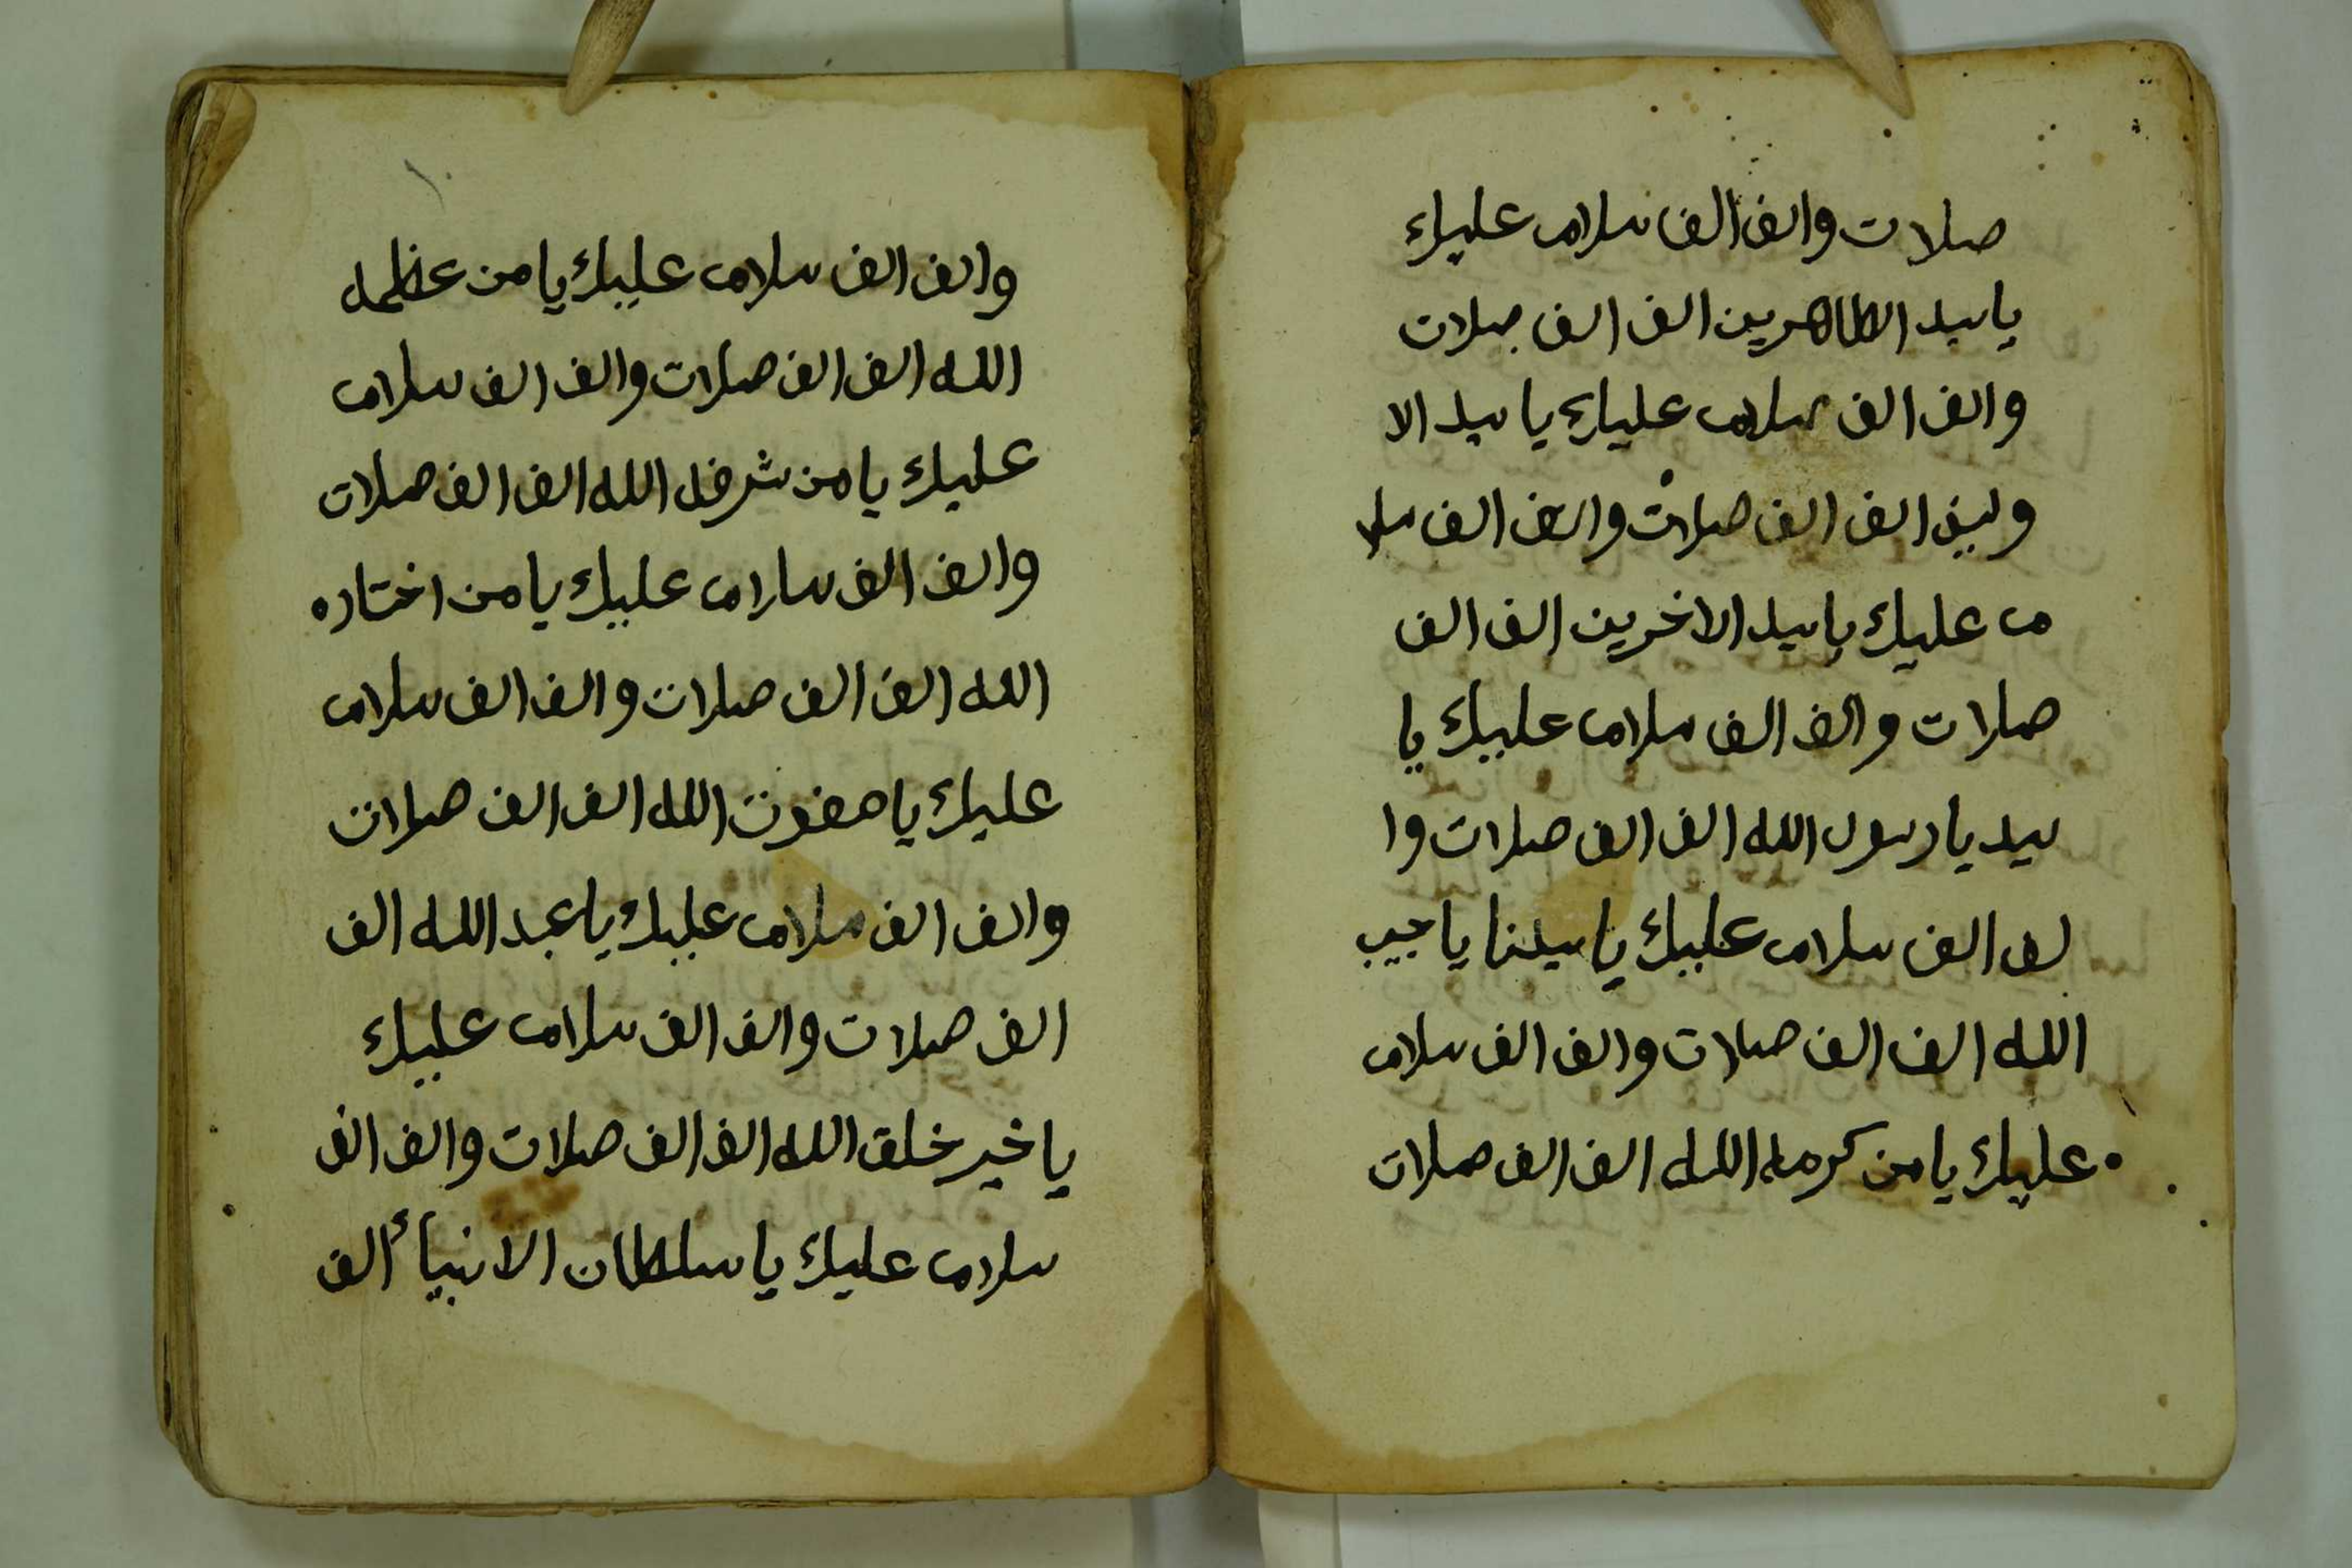 صلات والف الف سلام عليك
يا سيد الطاهرين الف الف صلات
والف الف سلام عليك يا سيد الا
ولين الف الف صلات والف الف سلا
م عليك يا سيد الاخرين الف الف
صلات والف الف سلام عليك يا
سيد يا رسول الله الف الف صلات وا
لف الف سلام عليك يا سيدنا يا حبيب
الله الف الف صلات والف الف سلام
عليك يا من كرمه الله الف الف صلات
والف الف سلام عليك يا من عظمه
الله الف الف صلات والف الف سلام
عليك يا من شرفه الله الف الف صلات
والف الف سلام عليك يا من اختاره
الله الف الف صلات والف الف سلام
عليك يا صفوت الله الف الف صلات
والف الف سلام عليك يا عبد الله الف
الف صلات والف الف سلام عليك
يا خير خلق الله الف الف صلات والف الف
سلام عليك يا سلطان الانبيأ الف